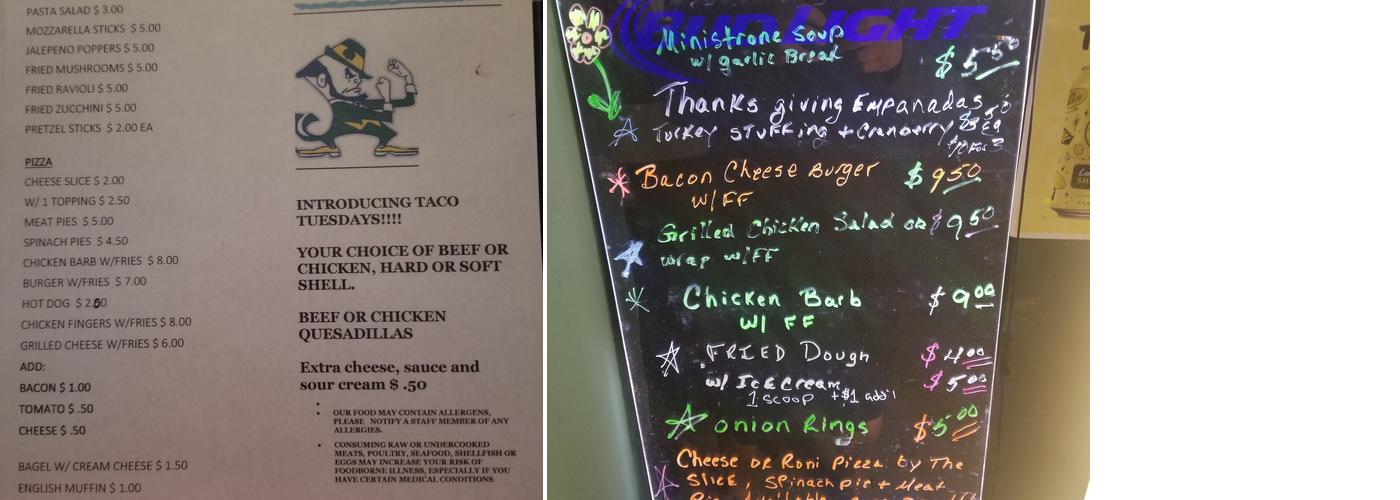 PASTA SALAD $ 3.00
MOZZARELLA STICKS $ 5.00
JALEPENO POPPERS $ 5.00
FRIED MUSHROOMS $ 5.00
FRIED RAVIOLI $ 5.00
FRIED ZUCCHINI $ 5.00
PRETZEL STICKS $ 2.00 EA
PIZZA
CHEESE SLICE $ 2.00
W/ 1 TOPPING $ 2.50
MEAT PIES $ 5.00
SPINACH PIES $ 4.50
CHICKEN BARB W/FRIES $ 8.00
BURGER W/FRIES $ 7.00
HOT DOG $ 2.00
CHICKEN FINGERS W/FRIES $ 8.00
GRILLED CHEESE W/FRIES $ 6.00
ADD:
BACON $ 1.00
TOMATO $ .50
CHEESE $ .50
BAGEL W/ CREAM CHEESE $ 1.50
ENGLISH MUFFIN $ 1.00
INTRODUCING TACO
TUESDAYS!!!!
YOUR CHOICE OF BEEF OR
CHICKEN, HARD OR SOFT
SHELL.
BEEF OR CHICKEN
QUESADILLAS
Extra cheese, sauce and
sour cream $ .50
• OUR FOOD MAY CONTAIN ALLERGENS,
PLEASE NOTIFY A STAFF MEMBER OF ANY
ALLERGIES.
• CONSUMING RAW OR UNDERCOOKED
MEATS, POULTRY, SEAFOOD, SHELLFISH OR
EGGS MAY INCREASE YOUR RISK OF
FOODBORNE ILLNESS, ESPECIALLY IF YOU
HAVE CERTAIN MEDICAL CONDITIONS.
BUD LIGHT
Ministrone Soup
w/ garlic Bread $ 5.50
Thanks giving Empanadas
Turkey Stuffing + Cranberry $3.50 Ea
$10 For 3
Bacon Cheese Burger $ 9.50
W/ FF
Grilled Chicken Salad or $ 9.50
wrap w/FF
Chicken Barb $ 9.00
W/ FF
FRIED Dough $ 4.00
w/ Ice Cream $ 5.00
1 scoop +$1 add'l
Onion Rings $5.00
Cheese or Roni Pizza by The
Slice, Spinach pie + Meat